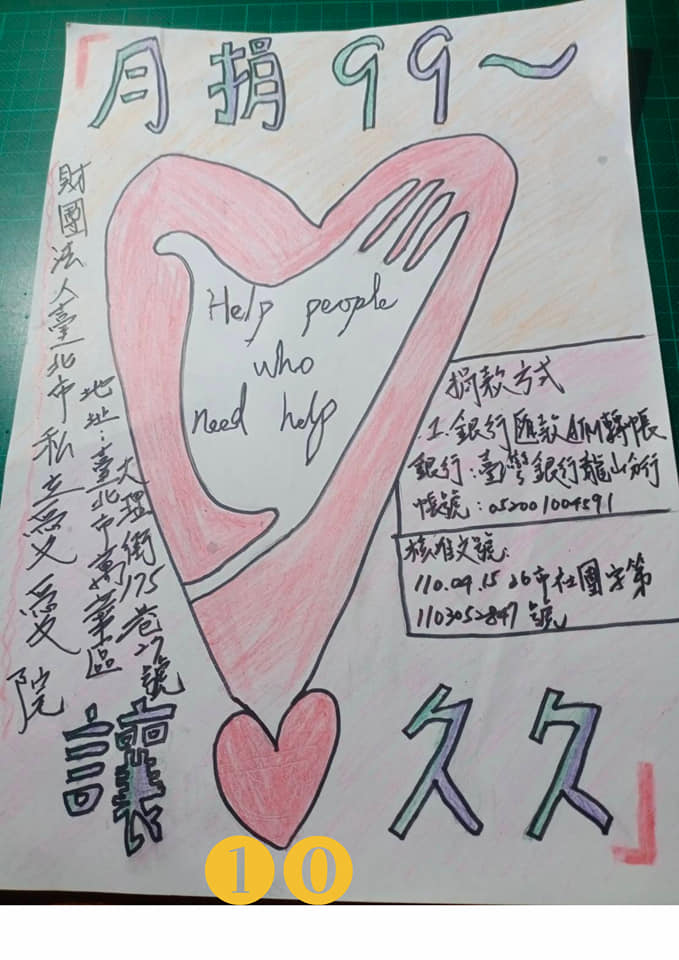 「月捐99~
財團法人臺北市私立愛愛院
地址:臺北市萬華區
大理街175巷27號
Help people
who
need help
捐款方式
1.銀行匯款ATM轉帳
銀行:臺灣銀行龍山分行
帳號:052001004591
核准文號:
110.09.15 北市社團字第
1103052847號
讓 久久」
10